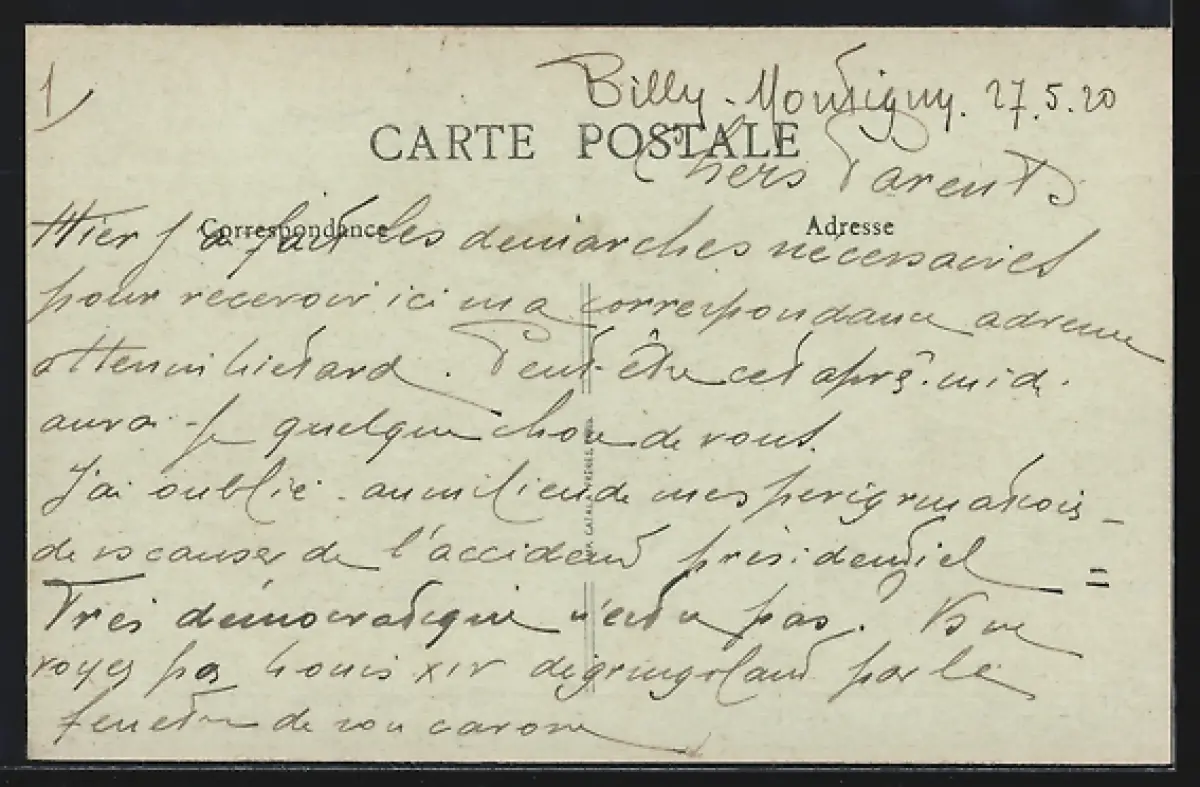 1/
Billy-Montigny. 27.5.20
CARTE POSTALE
Chers Parents
Correspondance
Adresse
Hier j'ai fait les demarches nécessaires
pour recevoir ici ma correspondance adressée
Henin Liétard. Peut-être cet après-midi
aurai-je quelque chose de vous.
J'ai oublié au milieu de mes
de vs causer de l'accident présidentiel
Très démocratique n'est ce pas? Vs ne
voyez pas Louis XIV dégringolant par la
fenêtre de son carosse